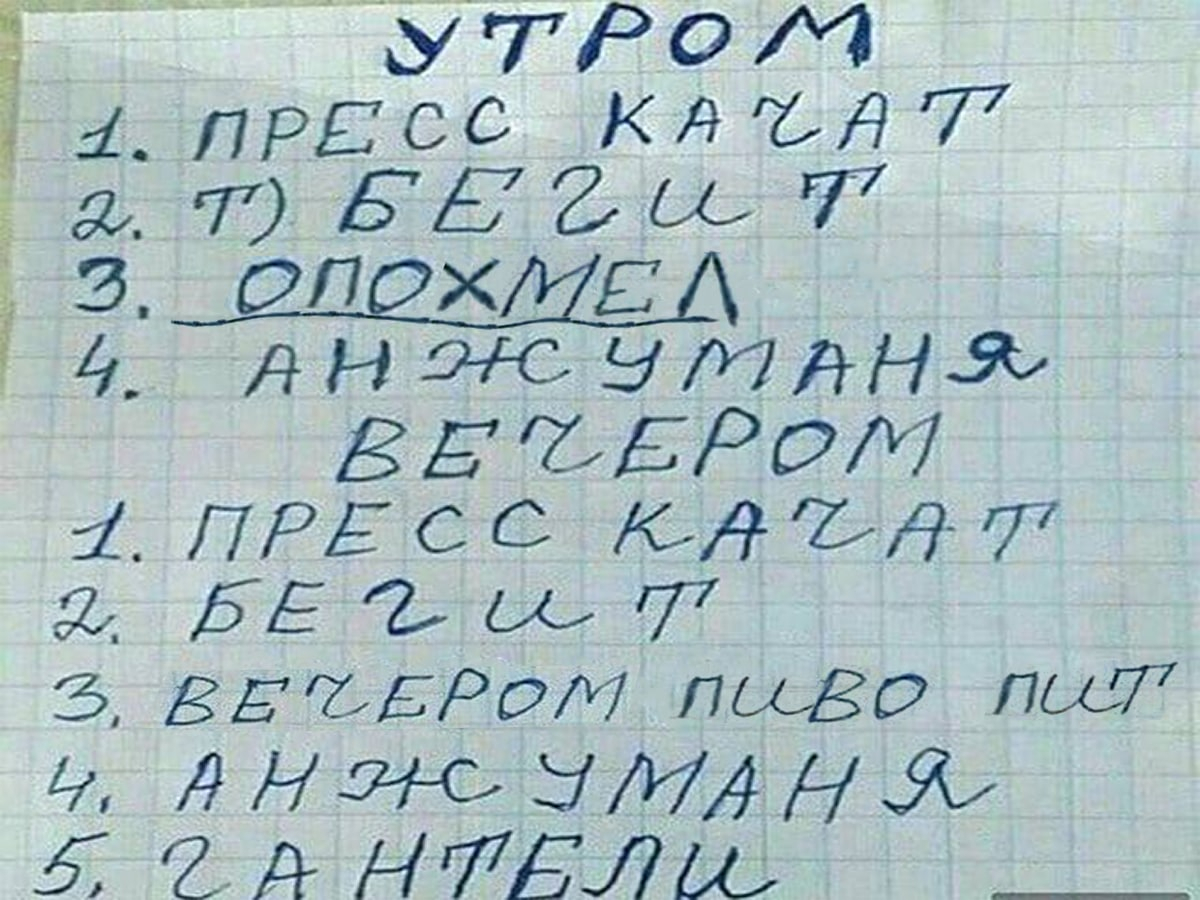 УТРОМ
1. ПРЕСС КАЧАТ
2. Т) БЕГИТ
3. ОПОХМЕЛ
4. АНЖУМАНЯ
ВЕЧЕРОМ
1. ПРЕСС КАЧАТ
2. БЕГИТ
3. ВЕЧЕРОМ ПИВО ПИТ
4. АНЖУМАНЯ
5. ГАНТЕЛИ